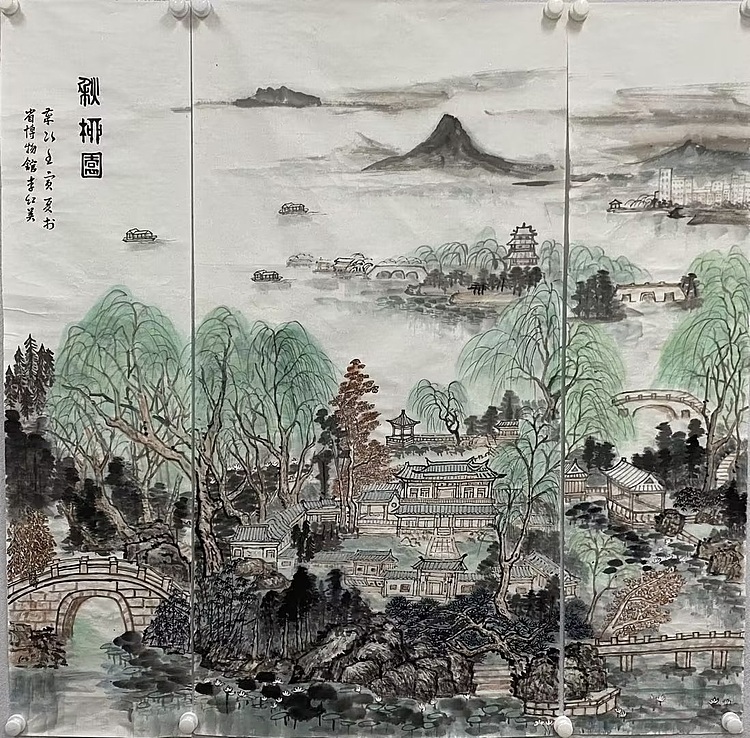 秋柳園
歲次壬寅夏於
省博物館李红